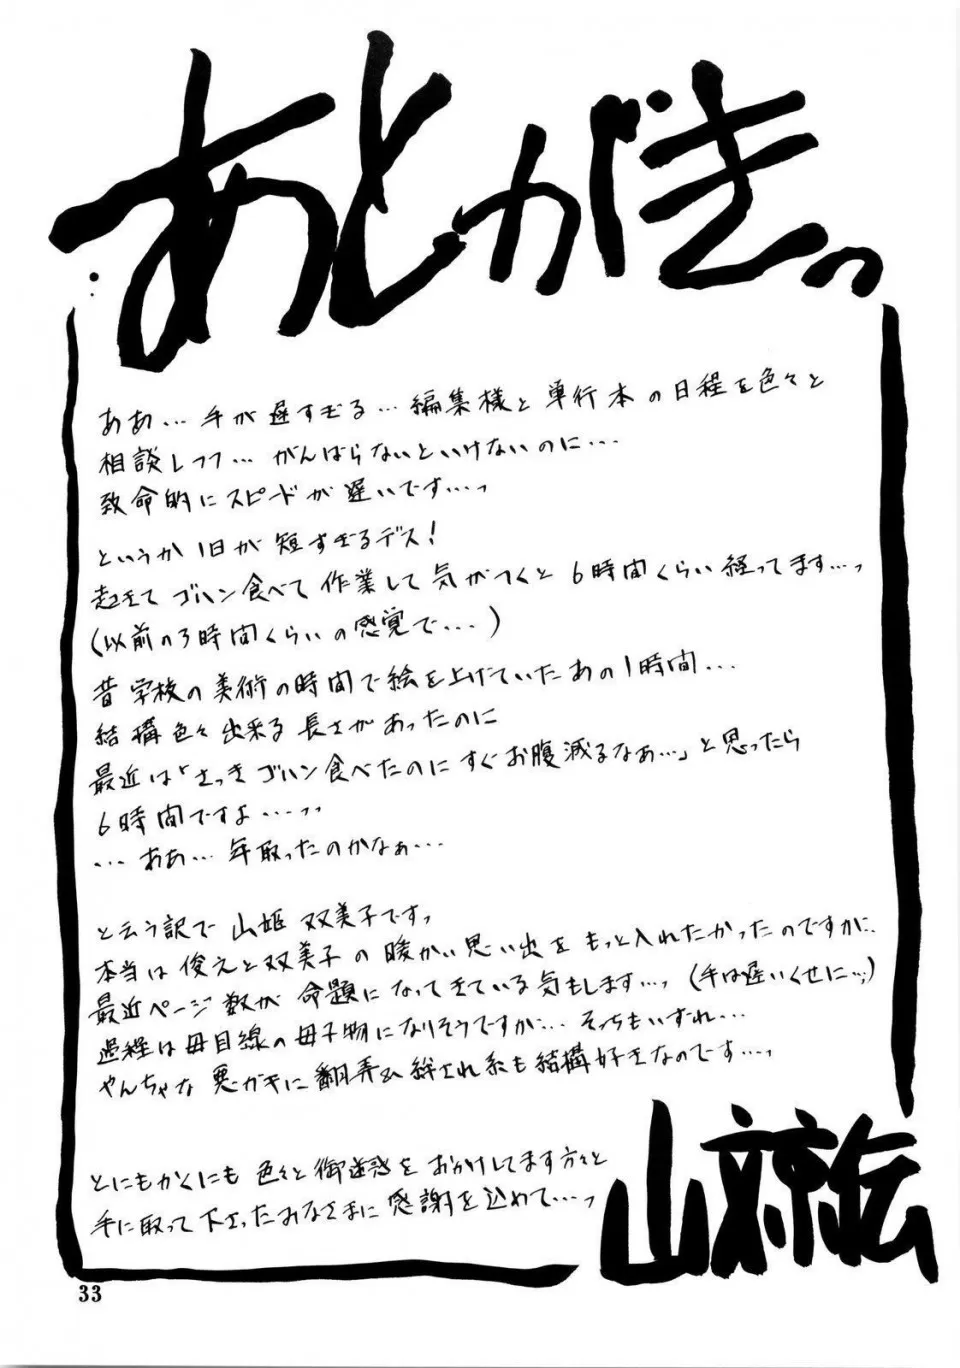 あとがきっ
ああ…手が遅すぎる…編集様と単行本の日程を色々と
相談しつつ…がんばらないといけないのに…
致命的にスピードが遅いです…っ
というか1日が短すぎるデス!
起きて ゴハン食べて 作業して 気がつくと 6時間くらい経ってます…っ
(以前の3時間くらいの感覚で…)
昔学校の美術の時間で絵を上げていたあの1時間…
結構色々出来る長さがあったのに
最近は「さっきゴハン食べたのにすぐお腹減るなぁ…」と思ったら
6時間ですよ…っっ
…ああ…年取ったのかなぁ…
と云う訳で 山姫 双美子ですっ
本当は俊之と双美子の暖かい思い出をもっと入れたかったのですが、
最近ページ数が命題になってきている気もします…っ(手は遅いくせに…っ)
過程は母目線の母子物になりそうですが…そっちもいずれ…
やんちゃな悪ガキに翻弄&絆され系も結構好きなのです…っ
とにもかくにも色々と御迷惑をおかけしてます方々と
手に取って下さったみなさまに感謝を込めて…っ
山文京伝
33